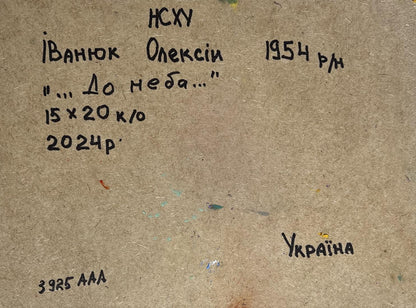 НСХУ
Іванюк Олексій 1954 р/н
"... До неба..."
15 x 20 к/о
2024р.
Україна
3925 ААА